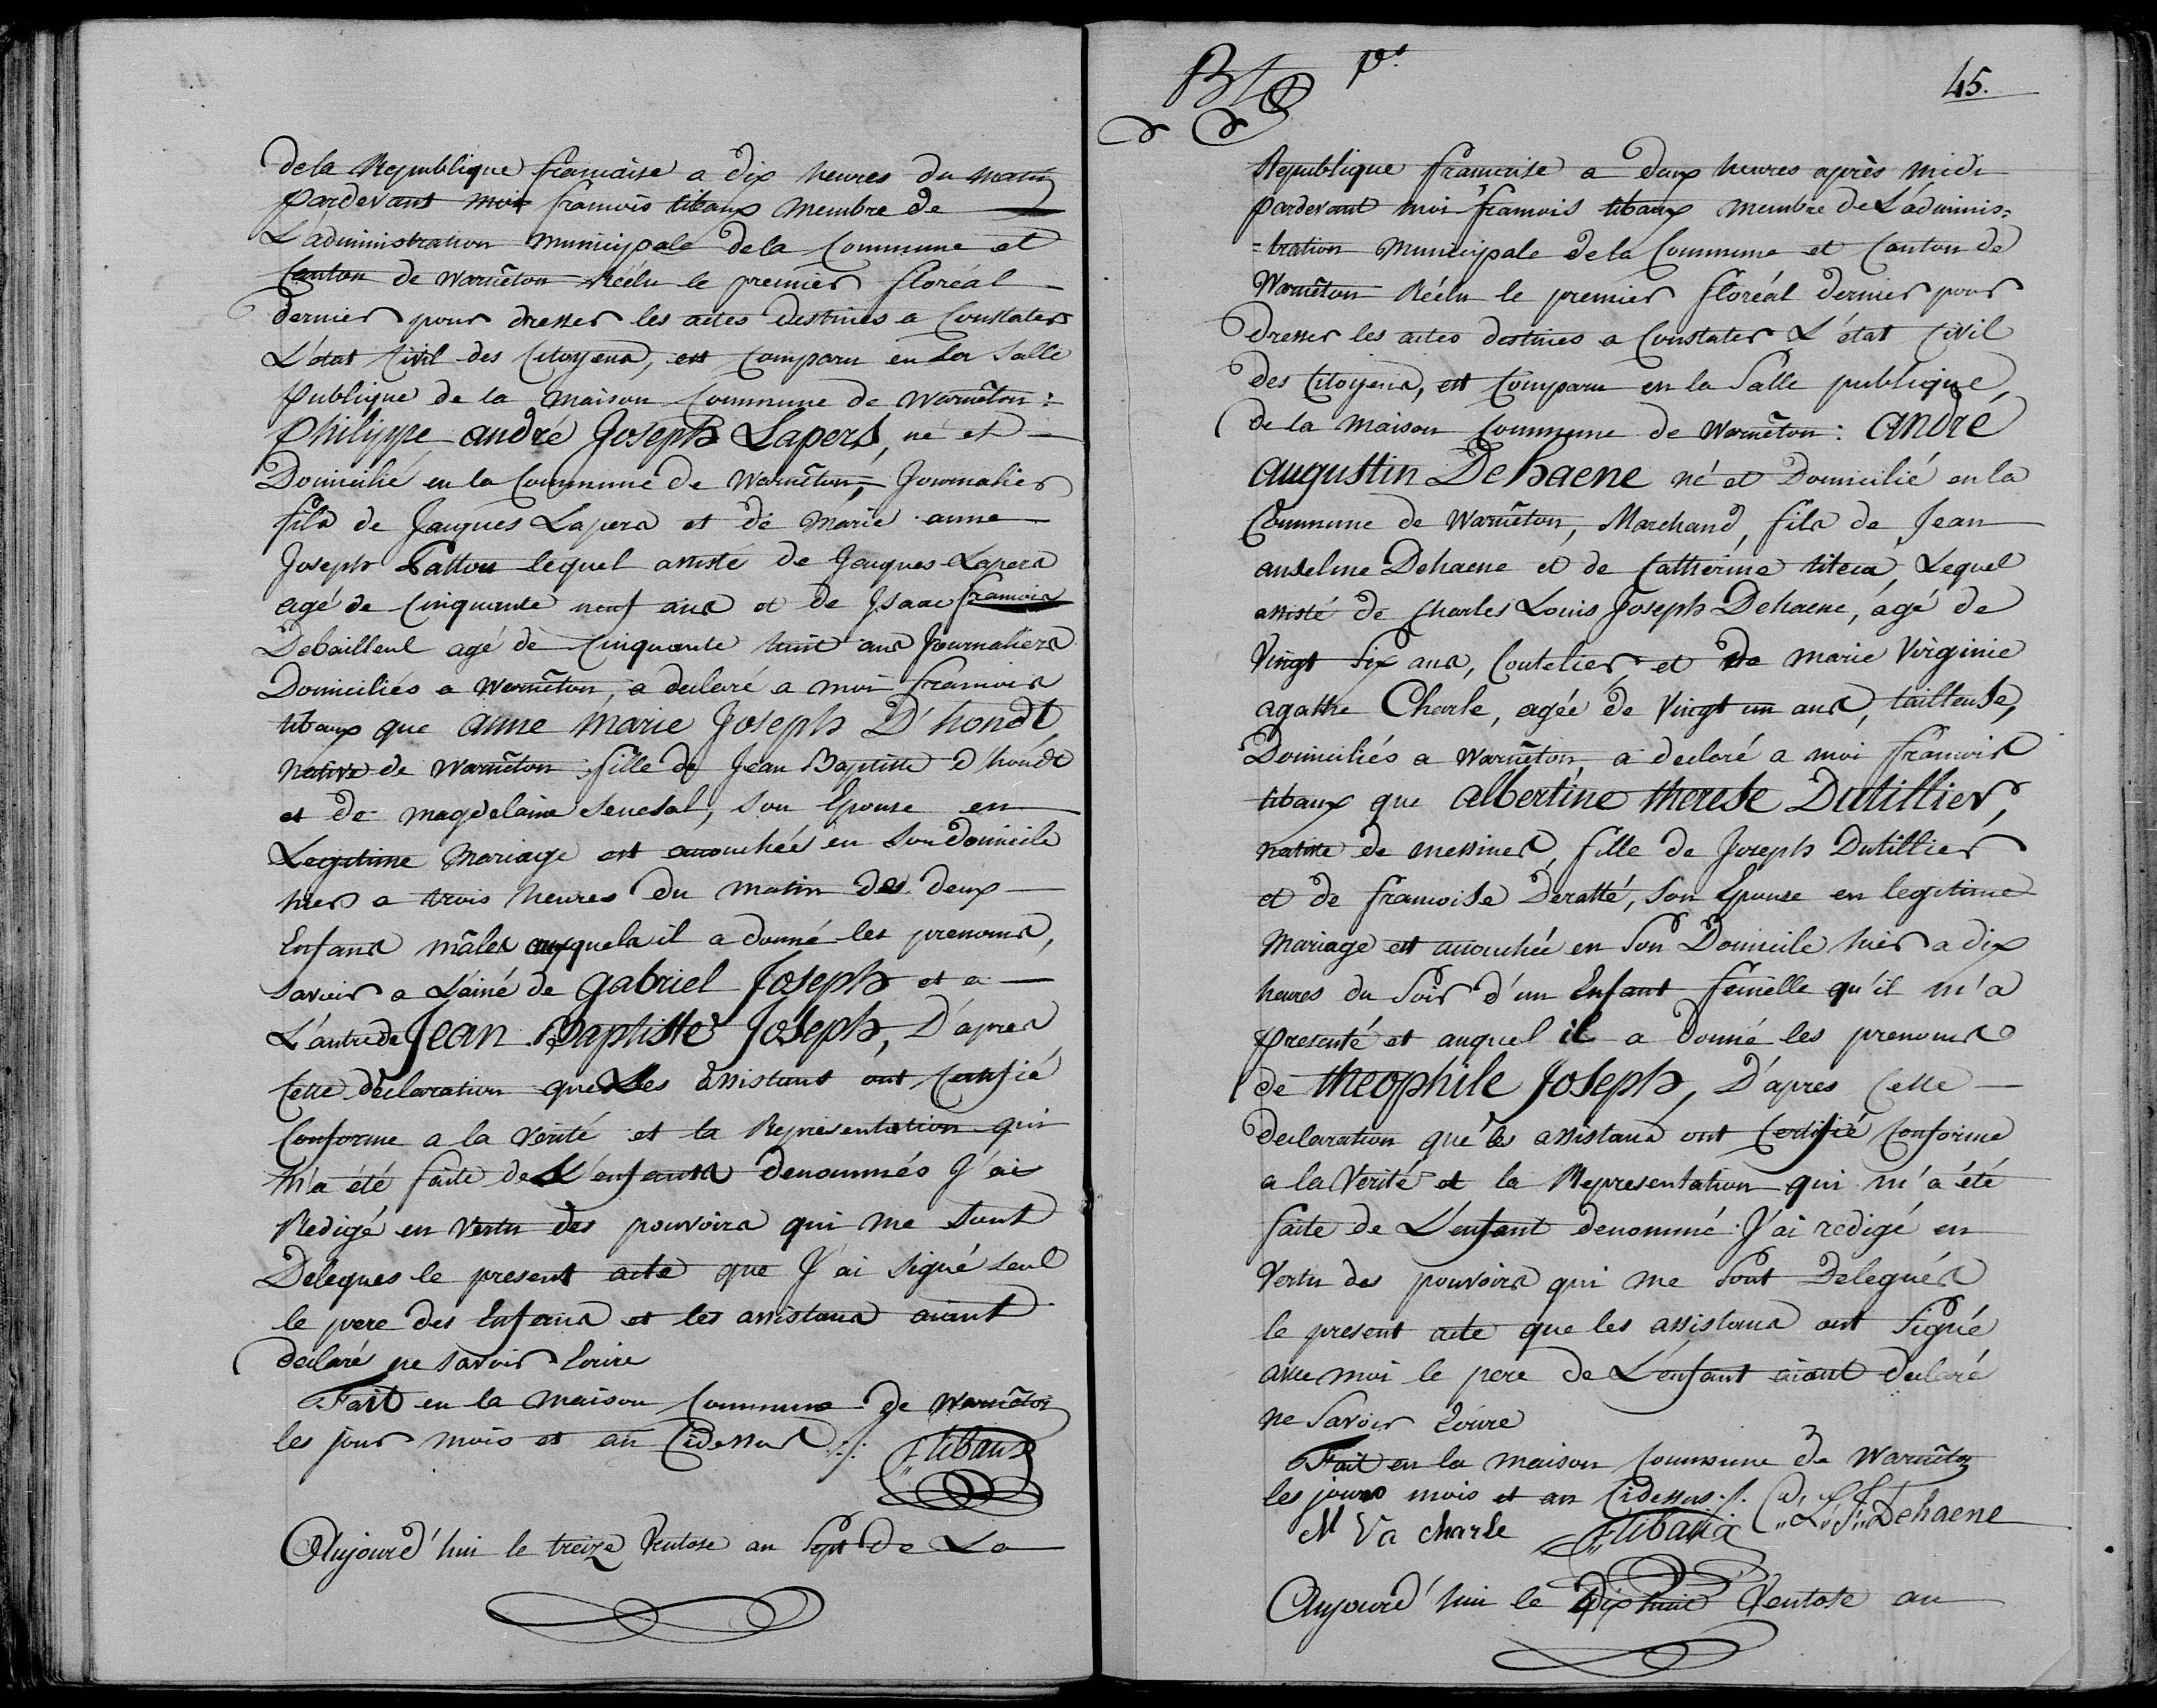 dela Republique francaise a dix heures du matin
pardevant moi francois tibaux membre de
L'administration municipale dela Commune et
Canton de Warnêton Réélu le premier floréal
dernier pour dresser les actes destinés a Constater
L'état Civil des Citoyens, est Comparu en la Salle
publique de la maison Commune de Warnêton :
Philippe andré Joseph Lapers, né et
Domicilié en la Commune de Warnêton, Journalier
fils de Jacques Lapers et de Marie anne
Joseph Patton lequel assisté de Jacques Lapers
agé de Cinquante neuf ans et de Isaac francois
Debailleul agé de Cinquante huit ans Journaliers
Domiciliés a Warnêton, a declaré a moi francois
tibaux que anne marie Joseph D'hondt
native de Warnêton fille de Jean Baptiste d'hondt
et de magdelaine Senesal, son Epouse en
Legitime Mariage est accouchée en Son domicile
hier a trois heures du matin des deux
Enfans mâles auxquels il a donné les prenoms,
Savoir a L'ainé de gabriel Joseph et a
L'autre de Jean Baptiste Joseph, D'apres
Cette declaration que Les assistans ont Certifié
Conforme a la Verité et la Representation qui
m'a été faite des L'enfants denommés J'ai
Redigé en Vertu des pouvoirs qui me Sont
Delegues le present acte que J'ai Signé Seul
le pere des Enfans et les assistans aiant
declaré ne Savoir Ecrire
Fait en la maison Commune de Warnêton
les jour mois et an Cidessus ./.
F: tibaux
Aujourd'hui le treize Ventose an Sept de La
45.
Republique francaise a deux heures après midi
pardevant moi francois tibaux membre de L'adminis=
=tration Municipale dela Commune et Canton de
Warnêton Réélu le premier floréal dernier pour
dresser les actes destinés a Constater L'état Civil
des Citoyens, est Comparu en la Salle publique,
de la Maison Commune de Warnêton : André
augustin Dehaene né et Domicilié en la
Commune de Warnêton, Marchand, fils de Jean
anselme Dehaene et de Catherine titeca, Lequel
assisté de Charles Louis Joseph Dehaene, âgé de
Vingt Six ans, Coutelier, et de marie Virginie
agathe Charle, agée de Vingt un ans, tailleuse,
Domiciliés a Warnêton a declaré a moi francois
tibaux que albertine therese Dutillier,
native de messines, fille de Joseph Dutillier
et de francoise Deratté, Son Epouse en legitime
Mariage est accouchée en Son Domicile hier a dix
heures du Soir d'un Enfant femelle qu'il m'a
presenté et auquel il a donné les prenoms
de theophile Joseph, D'apres Cette
declaration que les assistans ont Certifié Conforme
a la Verité et la Representation qui m'a été
faite de L'enfant denommé J'ai redigé en
Vertu des pouvoirs qui me Sont Delegués
le present acte que les assistans ont Signé
avec moi le pere de L'enfant aiant declaré
ne Savoir Ecrire
Fait en la maison Commune de Warnêton
les jours mois et an Cidessus ./.
M Va charle F: tibaux C,,L,,J,, Dehaene
Aujourd'hui le Dixhuit Ventose an